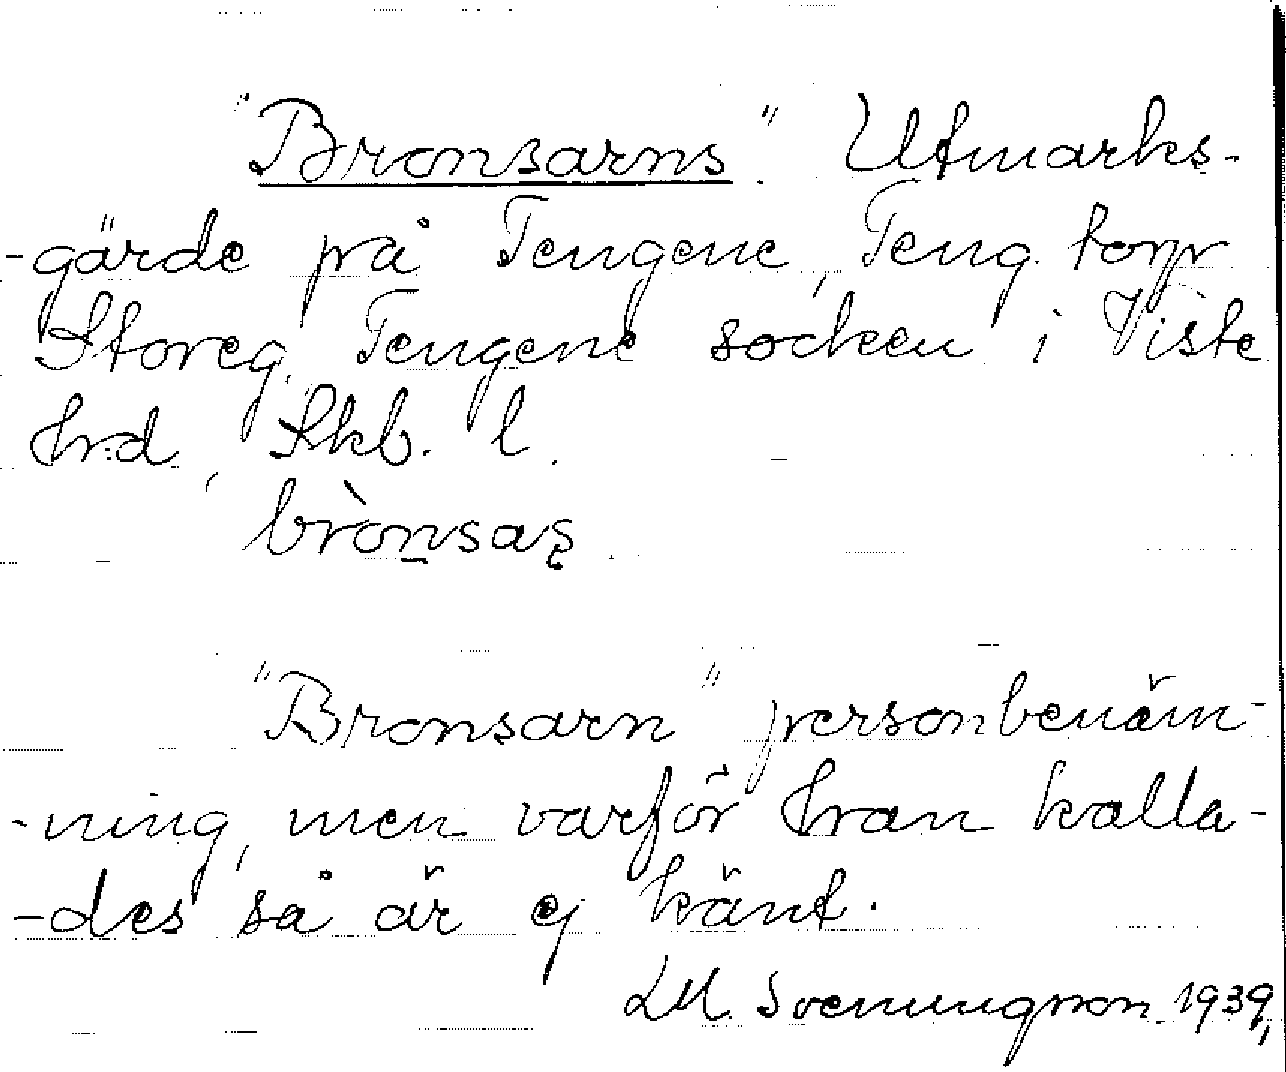 "Bronsarns". Utmarks-
-gärde på Tengene, Teng. torp
Storeg. Tengene socken i Viste
hrd, Skb. l.
brònsaş

"Bronsarn" personbenäm-
-ning, men varför han kalla-
-des så är ej känt.
LM. Svenungsson 1939,